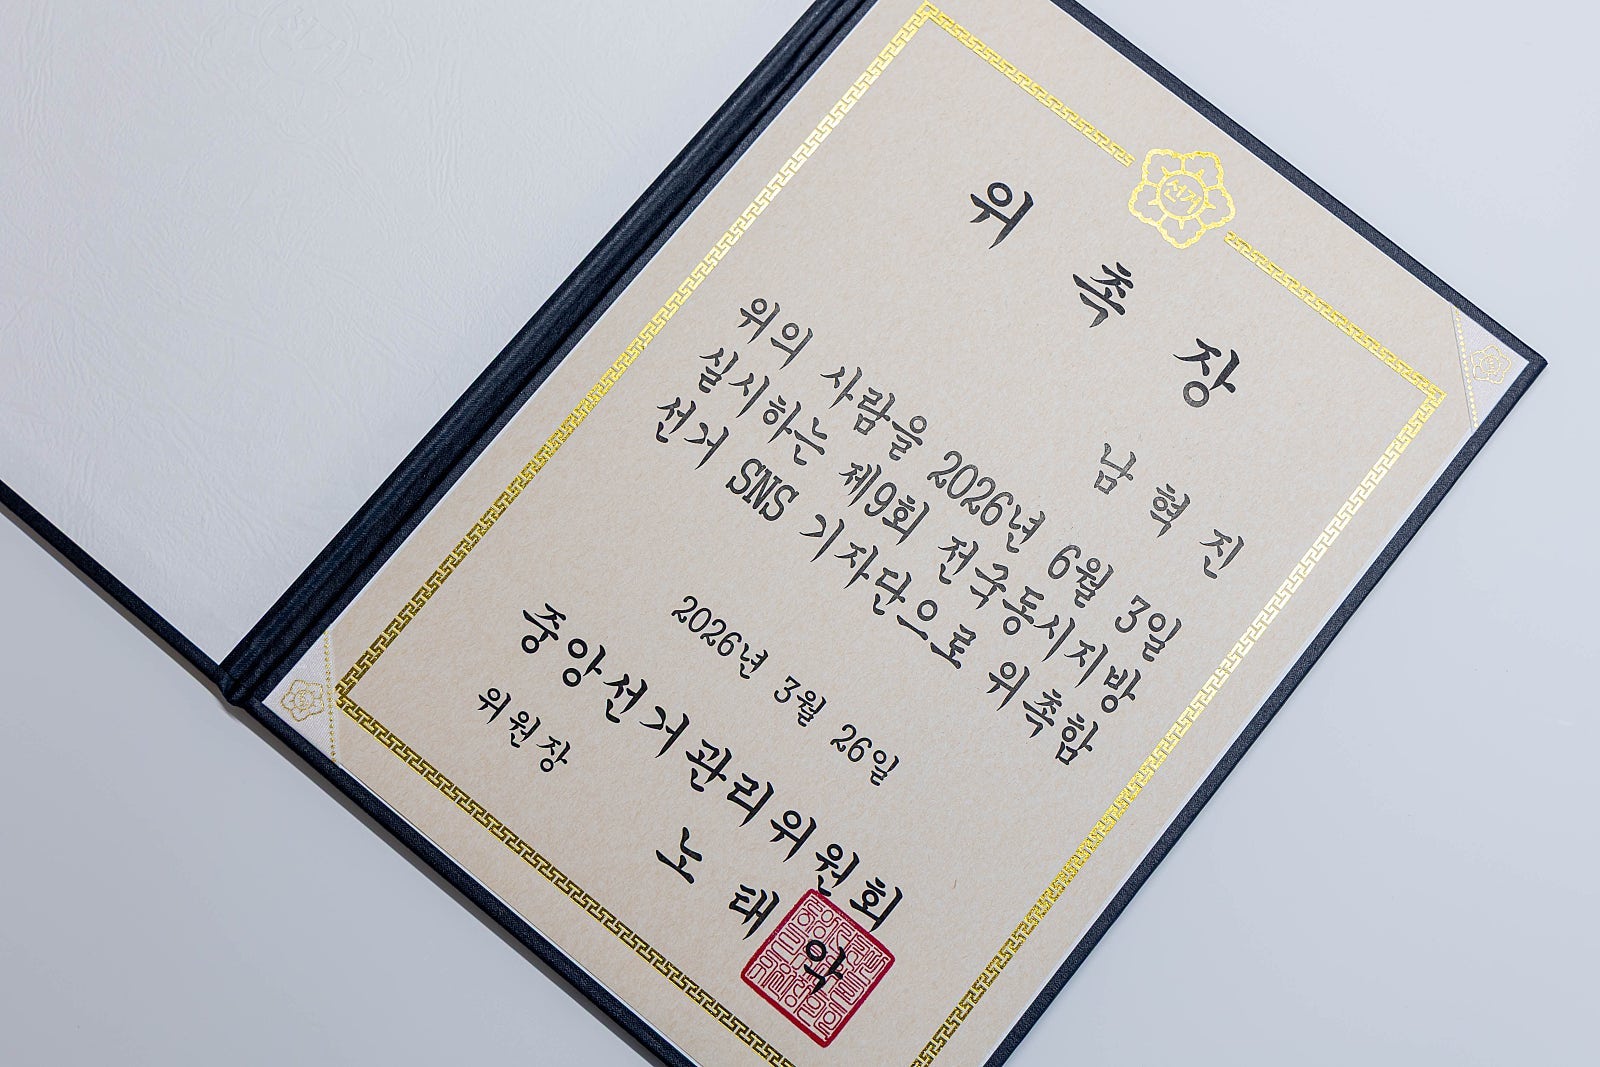 선거
위촉장
남혁진
위의 사람을 2026년 6월 3일
실시하는 제9회 전국동시지방
선거 SNS 기자단으로 위촉함
2026년 3월 26일
중앙선거관리위원회
위원장 노태악